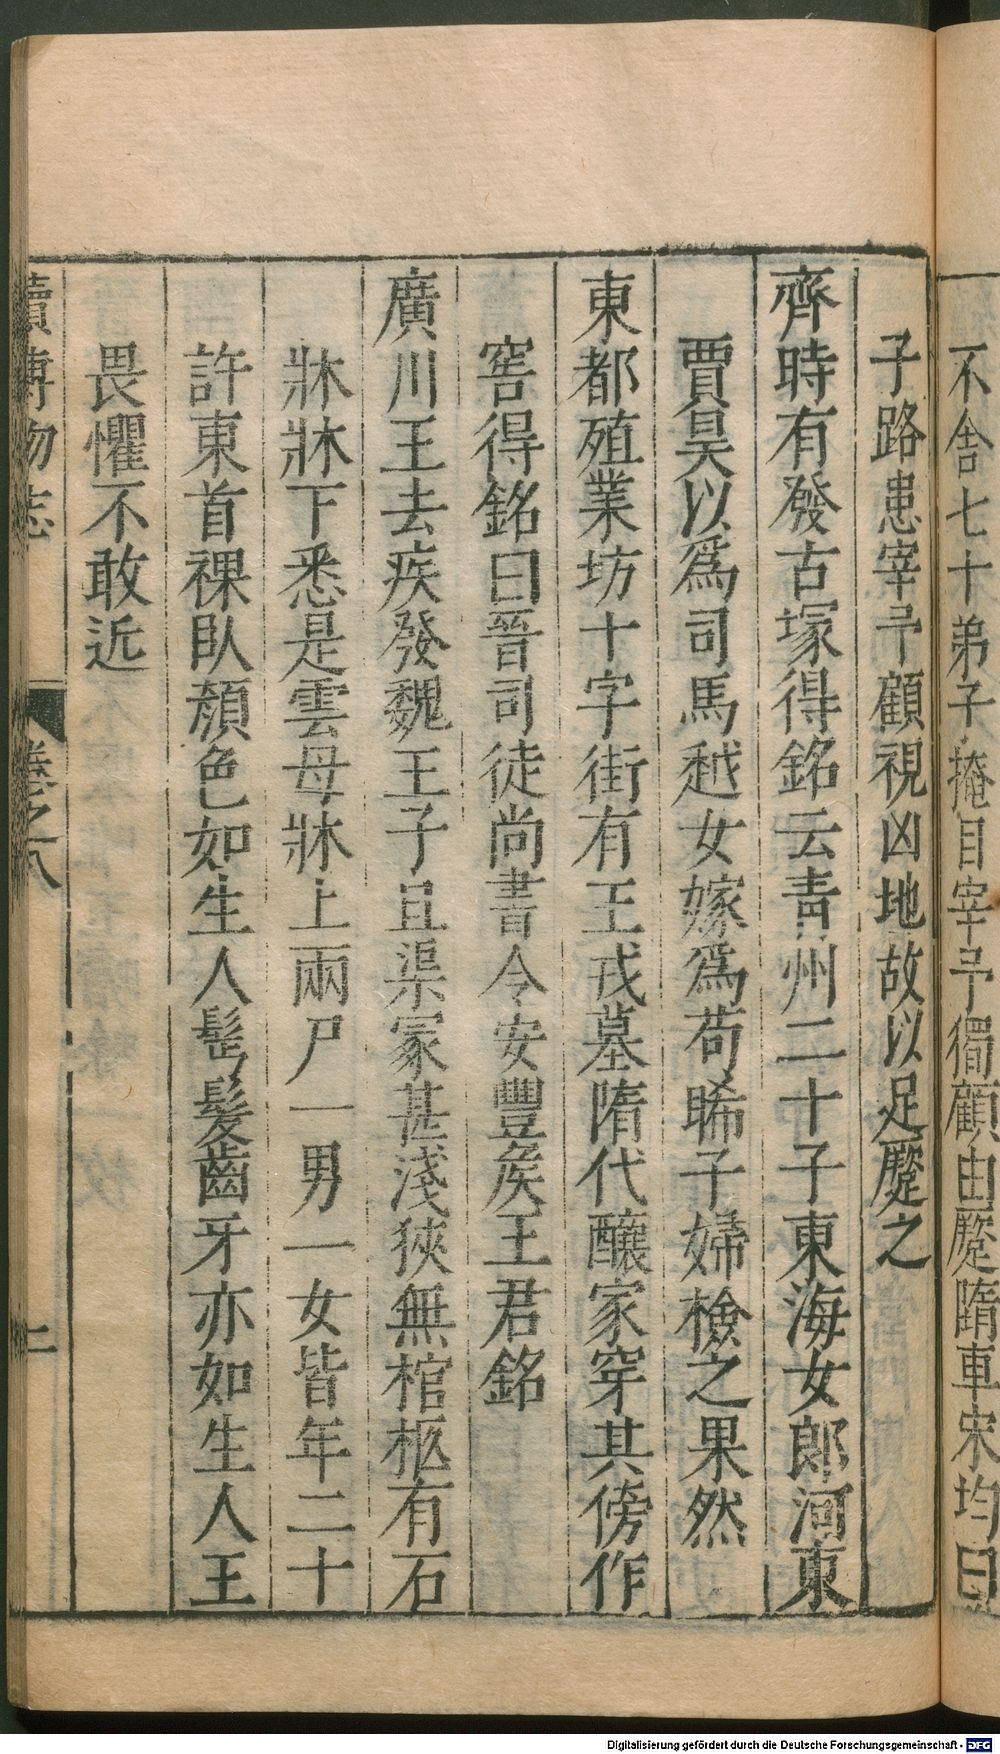 不舍七十弟子掩目宰予獨顧由蹷隋車宋均曰
子路患宰予顧視凶地故以足蹷之
齊時有發古塚得銘云靑州二十子東海女郎河東
賈昊以爲司馬越女嫁爲苟晞子婦檢之果然
東都殖業坊十字街有王戎墓隋代釀家穿其傍作
窖得銘曰晉司徒尚書令安豐矦王君銘
廣川王去疾發魏王子且渠冢甚淺狹無棺柩有石
牀牀下悉是雲母牀上兩尸一男一女皆年二十
許東首裸臥顏色如生人髩髮齒牙亦如生人王
畏懼不敢近
續博物志
卷之八
二
Digitalisierung gefördert durch die Deutsche Forschungsgemeinschaft - DFG